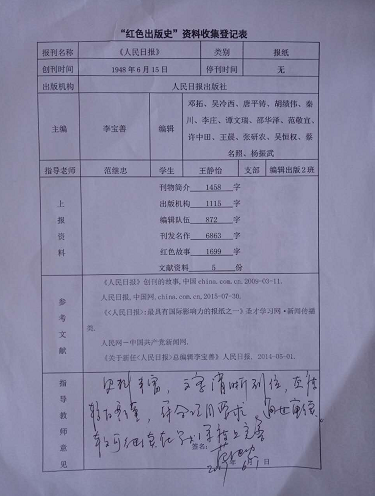 "红色出版史"资料收集登记表
报刊名称 《人民日报》 类别 报纸
创刊时间 1948年6月15日 停刊时间 无
出版机构 人民日报出版社
主编 李宝善 编辑 邓拓、吴冷西、唐平铸、胡绩伟、秦
川、李庄、谭文瑞、邵华泽、范敬宜、
许中田、王晨、张研农、吴恒权、蔡
名照、杨振武
指导老师 范继忠 学生 王静怡 支部 编辑出版2班
上报资料
刊物简介 1458 字
出版机构 1115 字
编辑队伍 872 字
刊发名作 6863 字
红色故事 1699 字
文献资料 5 份
参考文献
《人民日报》创刊的故事,中国china.com.cn,2009-03-11.
人民日报,中国网,china.com.cn,2015-07-20.
《<人民日报>:最具有国际影响力的报纸之一》圣才学习网·新闻传播
类.
人民网-中国共产党新闻网.
《关于新任<人民日报>总编辑李宝善》人民日报, 2014-05-01.
指导教师意见
史料丰富,文字清晰
符合项目要求
签名:
年 月 日